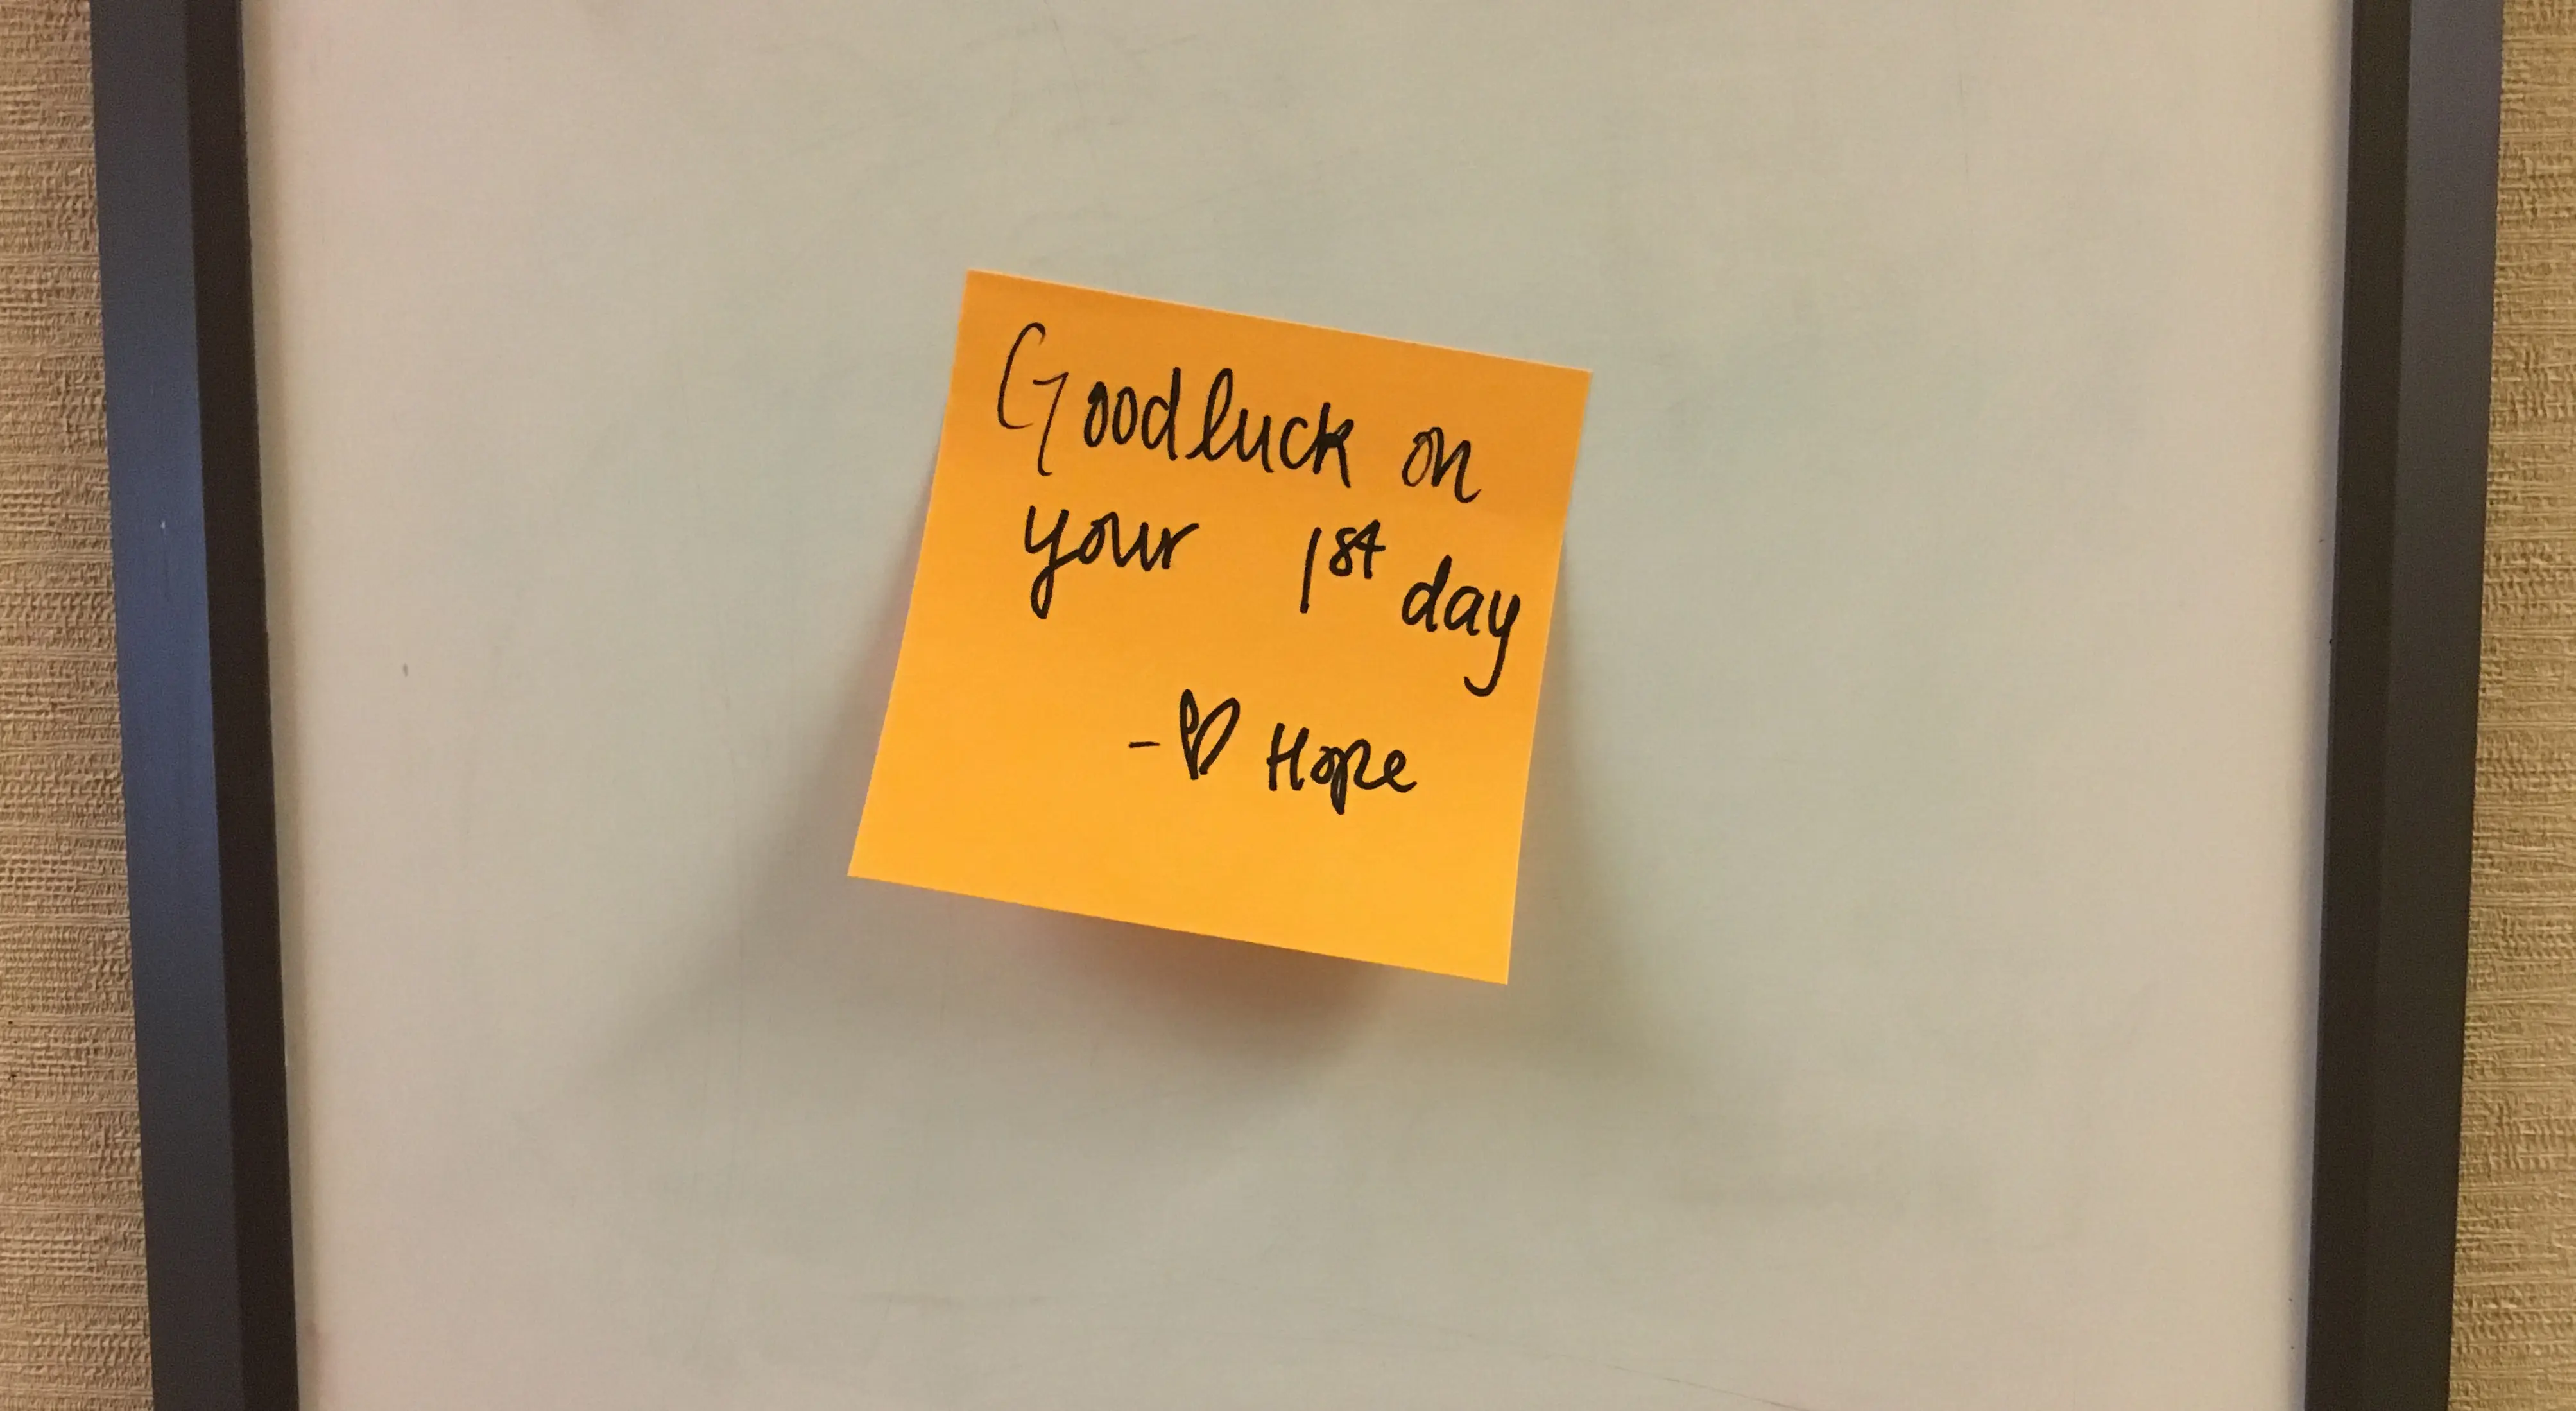 Good luck on
your 1st day
- ♡ Hope